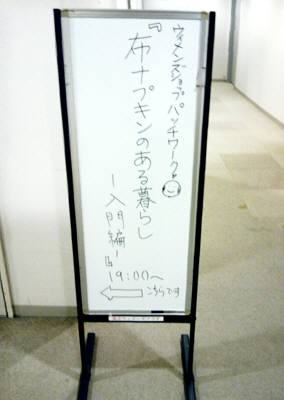 ウィメンズショップパッチワーク
『布ナプキンのある暮らし
ー入門編ー』
19:00〜
こちらです